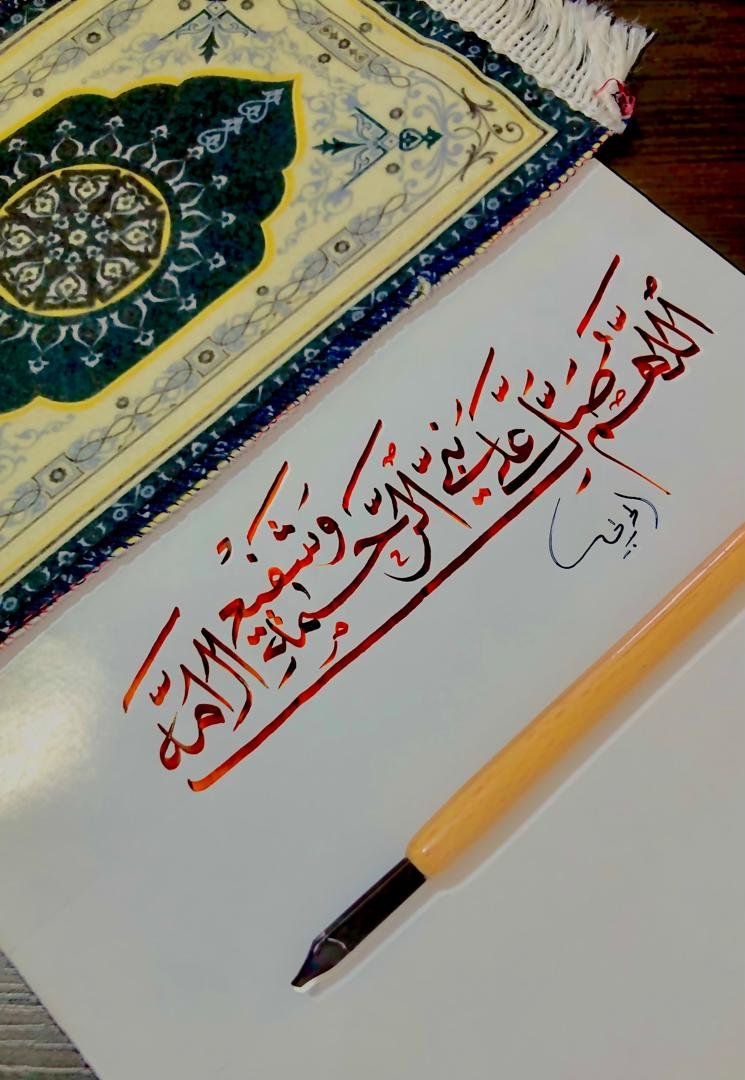 اللهم صَلِّ على نبيِّ الرَّحمة وشفيع الأمَّة